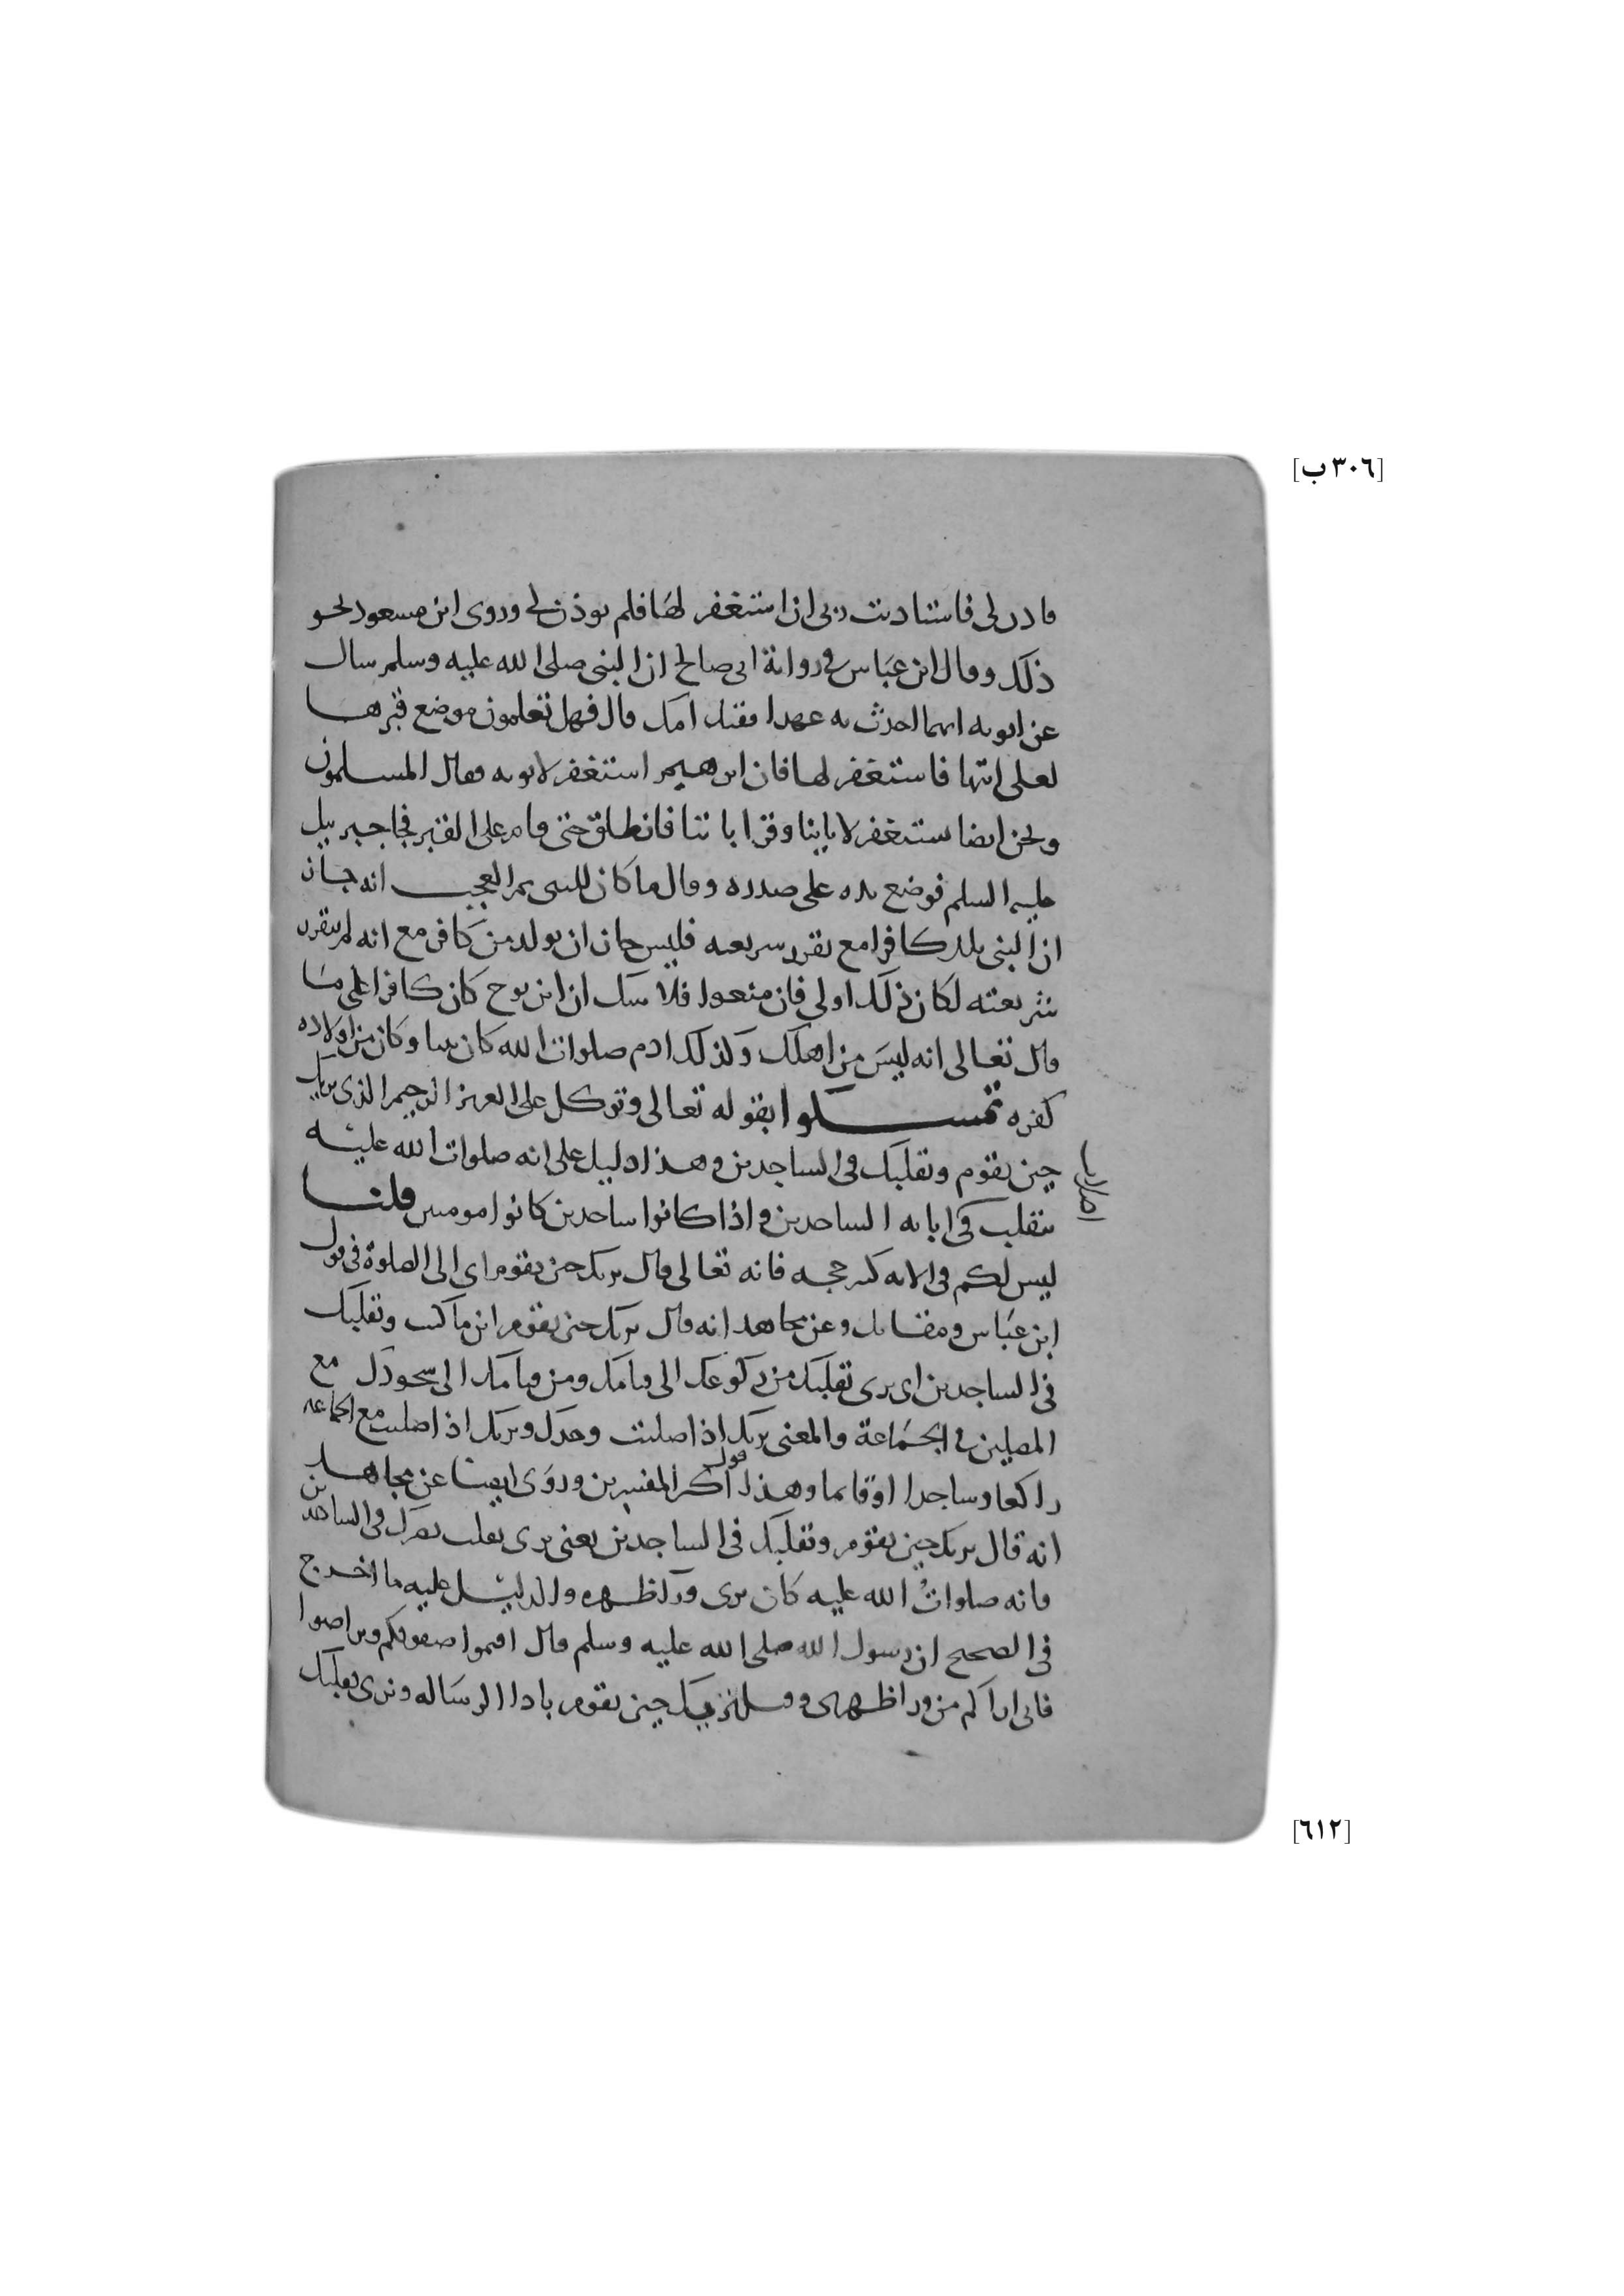 [٣٠٦ ب]
فاذن لي فاستاذنت ربي ان استغفر لها فلم يوذن لي وروى ابن مسعود نحو
ذلك وقال ابن عباس في رواية ابي صالح ان النبي صلى الله عليه وسلم سال
عن ابويه ايهما احدث به عهدا فقيل امك قال فهل تعلمون موضع قبرها
لعلي اتيها فاستغفر لها فان ابرهيم استغفر لابويه فقال المسلمون
ونحن ايضا نستغفر لابائنا وقراباتنا فانطلق حتى قام على القبر فجا جبريل
عليه السلم فوضع يده على صدره وقال ما كان للنبي ثم العجب انه جاز
ان النبي يلد كافرا مع تقرر شريعته فليس جاز ان يولد من كافر مع انه لم تتقرر
شريعته لكان ذلك اولى فان منعوا فلا شك ان ابن نوح كان كافرا على ما
قال تعالى انه ليس من اهلك وكذلك ادم صلوات الله كان نبيا وكان من اولاده
كفره تمسكوا بقوله تعالى وتوكل على العزيز الرحيم الذي يريك
حين تقوم وتقلبك في الساجدين وهذا دليل على انه صلوات الله عليه
تتقلب في ابايه الساجدين واذا كانوا ساجدين كانوا مومنين قلنا
ليس لكم في الايه حجه فانه تعالى قال يريك حين تقوم اي الى الصلوة في قول
ابن عباس ومقاتل وعن مجاهد انه قال يريك حين تقوم اين ما كنت وتقلبك
في الساجدين اي يرى تقلبك من ركوعك الى قيامك ومن قيامك الى سجودك مع
المصلين في الجماعة والمعنى يريك اذا صليت وحدك ويريك اذا صليت مع الجماعه
راكعا وساجدا او قايما وهذا قول اكثر المفسرين وروى ايضا عن مجاهد
انه قال يريك حين تقوم وتقلبك في الساجدين يعني يرى تقلب بصرك في الساجدين
فانه صلوات الله عليه كان يرى ورا ظهره والدليل عليه ما اخرج
في الصحيح ان رسول الله صلى الله عليه وسلم قال اقيموا صفوفكم وتراصوا
فاني اراكم من ورا ظهري وقيل يريك حين تقوم بادا الرساله ويرى تقلبك
[٦١٢]